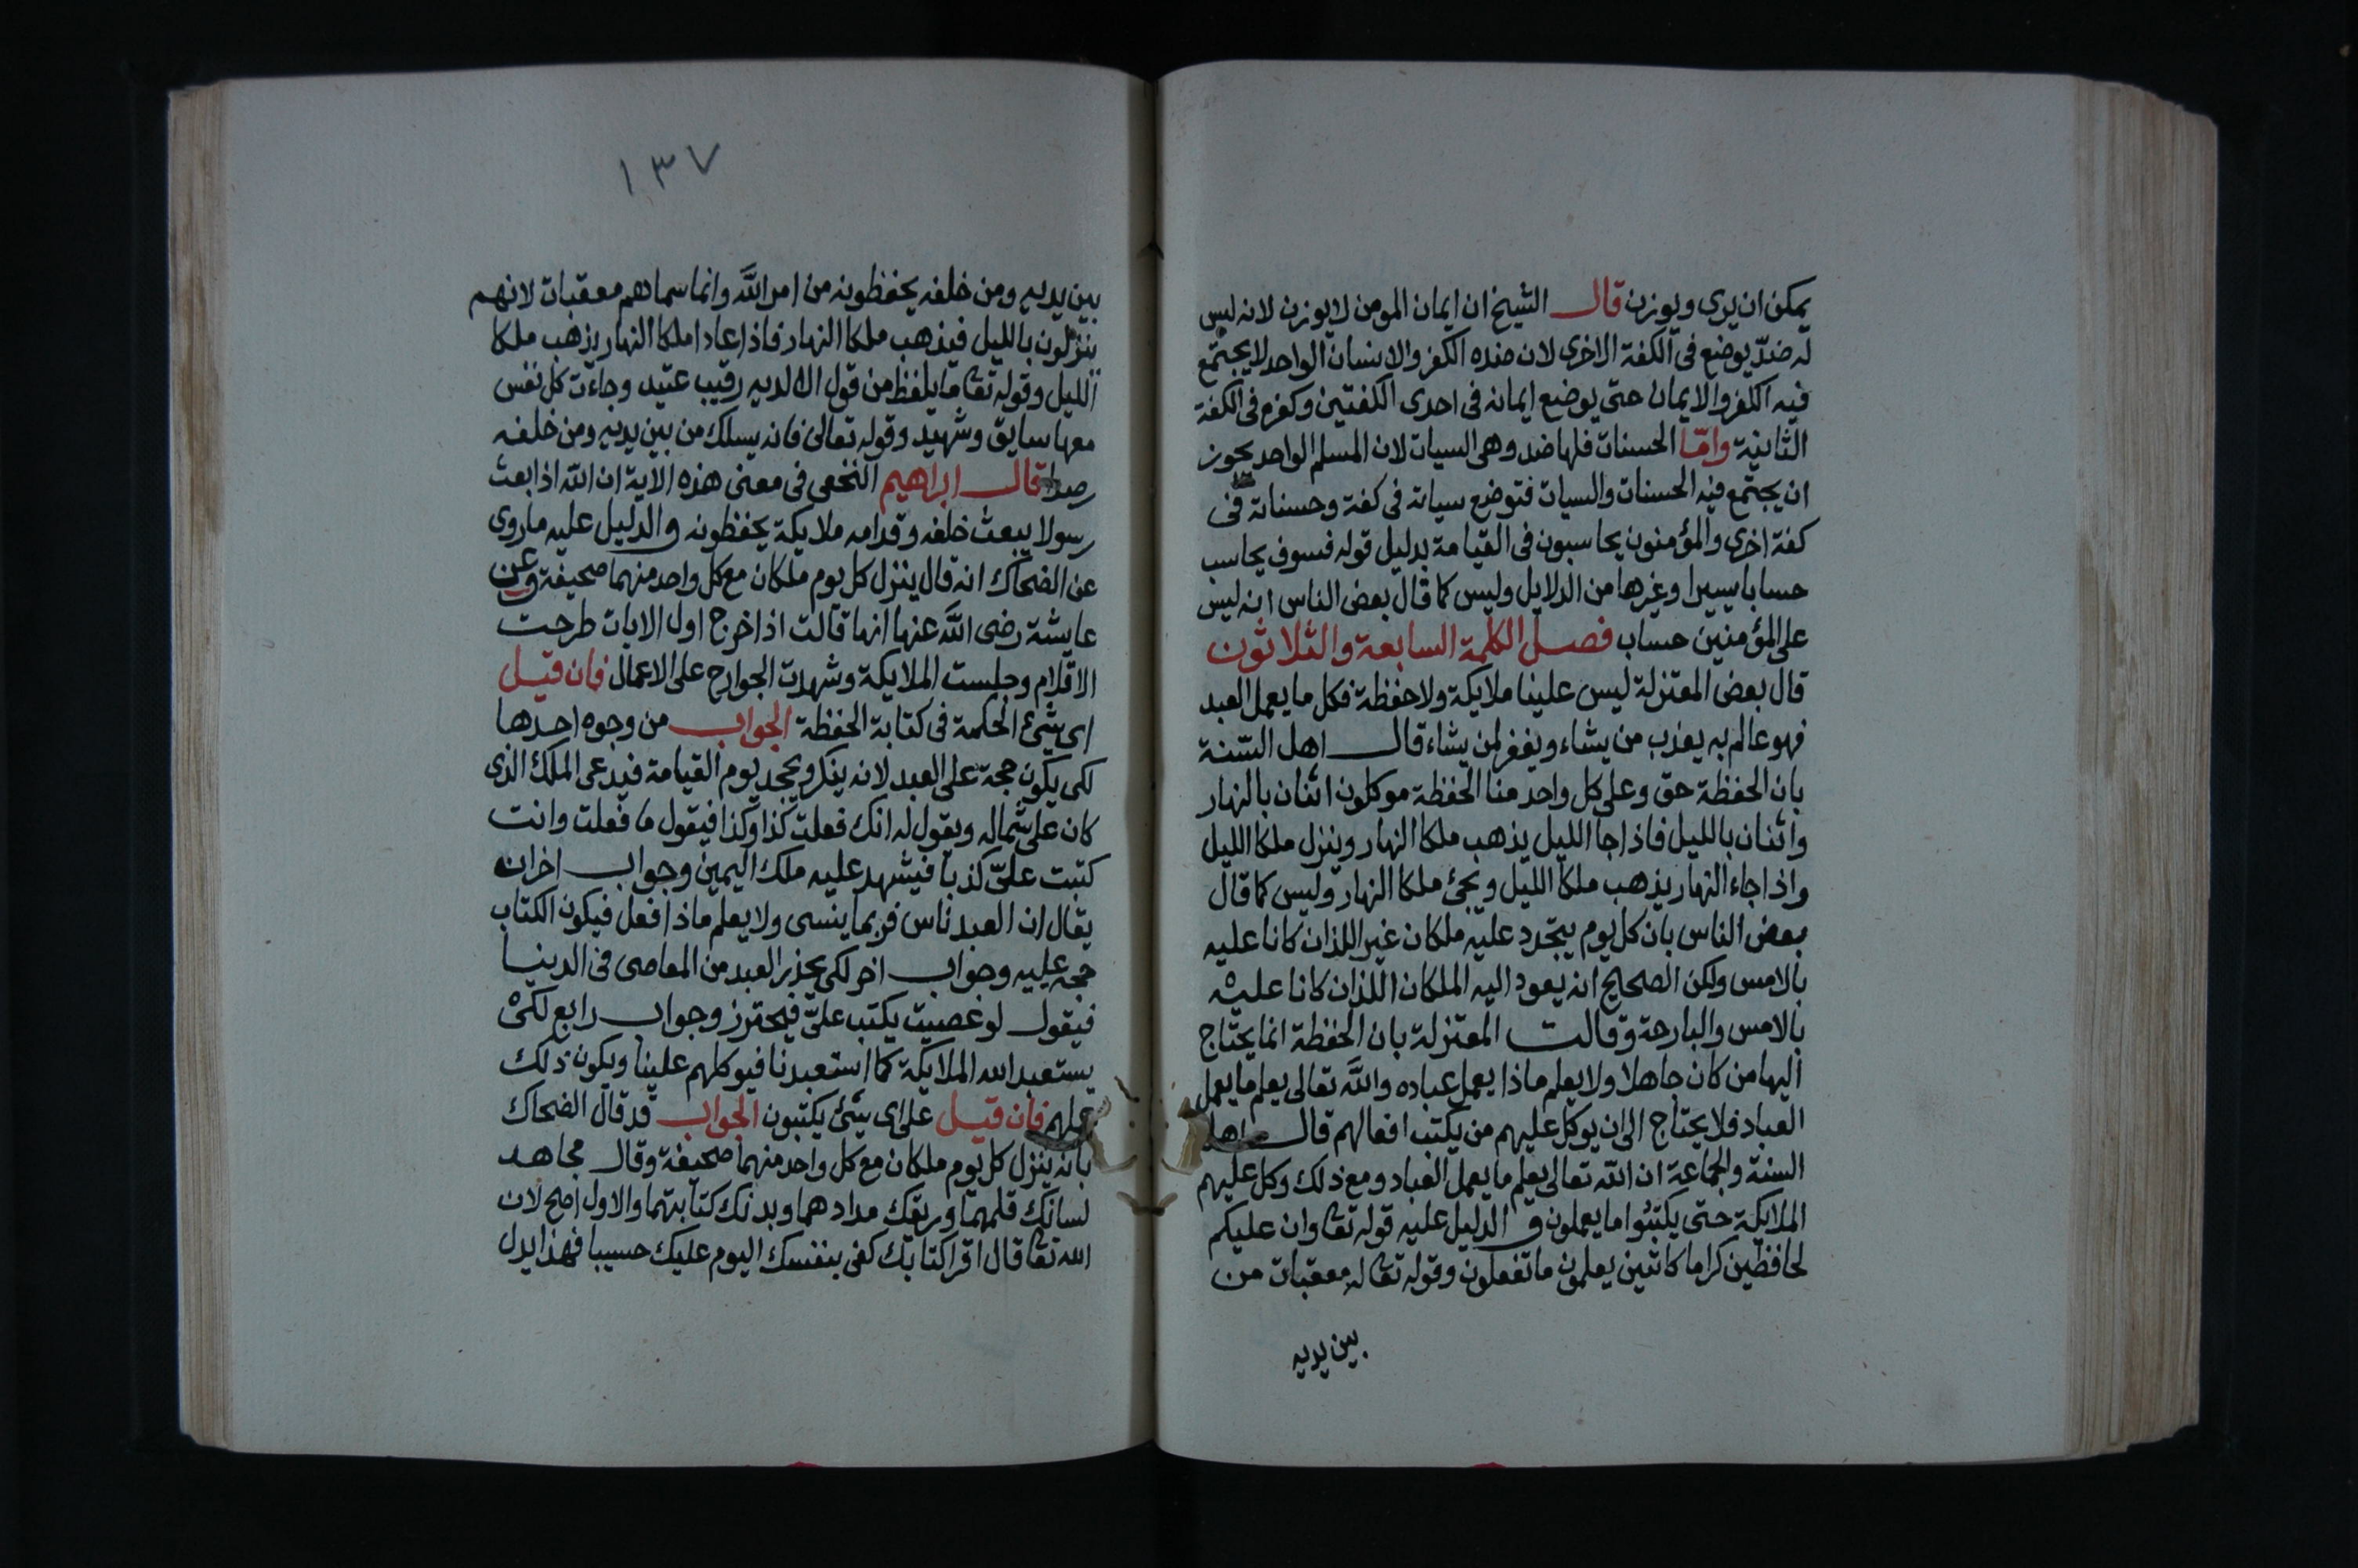 يمكن ان يرى ويوزن قال الشيخ ان ايمان المومن لا يوزن لانه ليس
له ضدّ يوضع فى الكفة الاخرى لان ضده الكفر والانسان الواحد لا يجتمع
فيه الكفر والايمان حتى يوضع ايمانه فى احدى الكفتين وكفره فى الكفة
الثانية وامّا الحسنات فلها ضد وهى السيات لان المسلم الواحد يجوز
ان يجتمع فيه الحسنات والسيات فتوضع سياته فى كفة وحسناته فى
كفة اخرى والمؤمنون يحاسبون فى القيامة بدليل قوله فسوف يحاسب
حسابا يسيرا وغيرها من الدلايل وليس كما قال بعض الناس انه ليس
على المؤمنين حساب فصل الكلمة السابعة والثلاثون
قال بعض المعتزلة ليس علينا ملايكة ولا حفظة فكل ما يعمل العبد
فهو عالم به يعذب من يشاء ويغفر لمن يشاء قال اهل السّنة
بان الحفظة حق وعلى كل واحد منا الحفظة موكلون اثنان بالنهار
واثنان بالليل فاذا جا الليل يذهب ملكا النهار وينزل ملكا الليل
واذا جاء النهار يذهب ملكا الليل ويجئ ملكا النهار وليس كما قال
بعض الناس بان كل يوم يتجدد عليه ملكان غير اللذان كانا عليه
بالامس ولكن الصحيح انه يعود اليه الملكان اللذان كانا عليه
بالامس والبارحة وقالت المعتزلة بان الحفظة انما يحتاج
اليها من كان جاهلا ولا يعلم ماذا يعمل عباده والله تعالى يعلم ما يعمل
العباد فلا يحتاج الى ان يوكل عليهم من يكتب افعالهم قال اهل
السنة والجماعة ان الله تعالى يعلم ما يعمل العباد ومع ذلك وكل عليهم
الملايكة حتى يكتبوا ما يعملون والدليل عليه قوله تعا وان عليكم
لحافظين كراما كاتبين يعلمون ما تفعلون وقوله تعا له معقبات من
بين يديه
١٣٧
بين يديه ومن خلفه يحفظونه من امر الله وانما سماهم معقبات لانهم
ينزلون بالليل فيذهب ملكا النهار فاذا عادا ملكا النهار يذهب ملكا
الليل وقوله تعا ما يلفظ من قول الا لديه رقيب عتيد وجاءت كل نفس
معها سايق وشهيد وقوله تعالى فانه يسلك من بين يديه ومن خلفه
رصدا قال ابراهيم النخعى فى معنى هذه الاية ان الله اذا بعث
رسولا يبعث خلفه وقدامه ملايكة يحفظونه والدليل عليه ما روى
عن الضحاك انه قال ينزل كل يوم ملكان مع كل واحد منهما صحيفة وعن
عايشة رضى الله عنها انها قالت اذا خرج اول الايات طرحت
الاقلام وجلست الملايكة وشهدت الجوارح على الاعمال فان قيل
اى شئ الحكمة فى كتابة الحفظة الجواب من وجوه احدها
لكى يكون حجة على العبد لانه ينكر ويجحد يوم القيامة فيدعى الملك الذى
كان على شماله ويقول له انك فعلت كذا وكذا فيقول ما فعلت وانت
كتبت علىّ كذبا فيشهد عليه ملك اليمين وجواب اخر انه
يقال ان العبد ناس فربما ينسى ولا يعلم ماذا فعل فيكون الكتاب
حجه عليه وجواب اخر لكى يحذر العبد من المعاصى فى الدينا
فيقول لو عصيت يكتب علىّ فيحترز وجواب رابع لكى
يستعبد الله الملايكة كما استعبدنا فيوكلهم علينا ويكون ذلك
عملهم فان قيل على اى شئ يكتبون الجواب قد قال الضحاك
بانه ينزل كل يوم ملكان مع كل واحد منهما صحيفة وقال مجاهد
لسانك قلمهما وريقك مدادهما وبدنك كتابتهما والاول اصح لان
الله تعا قال اقرا كتابك كفى بنفسك اليوم عليك حسيبا فهذا يدل